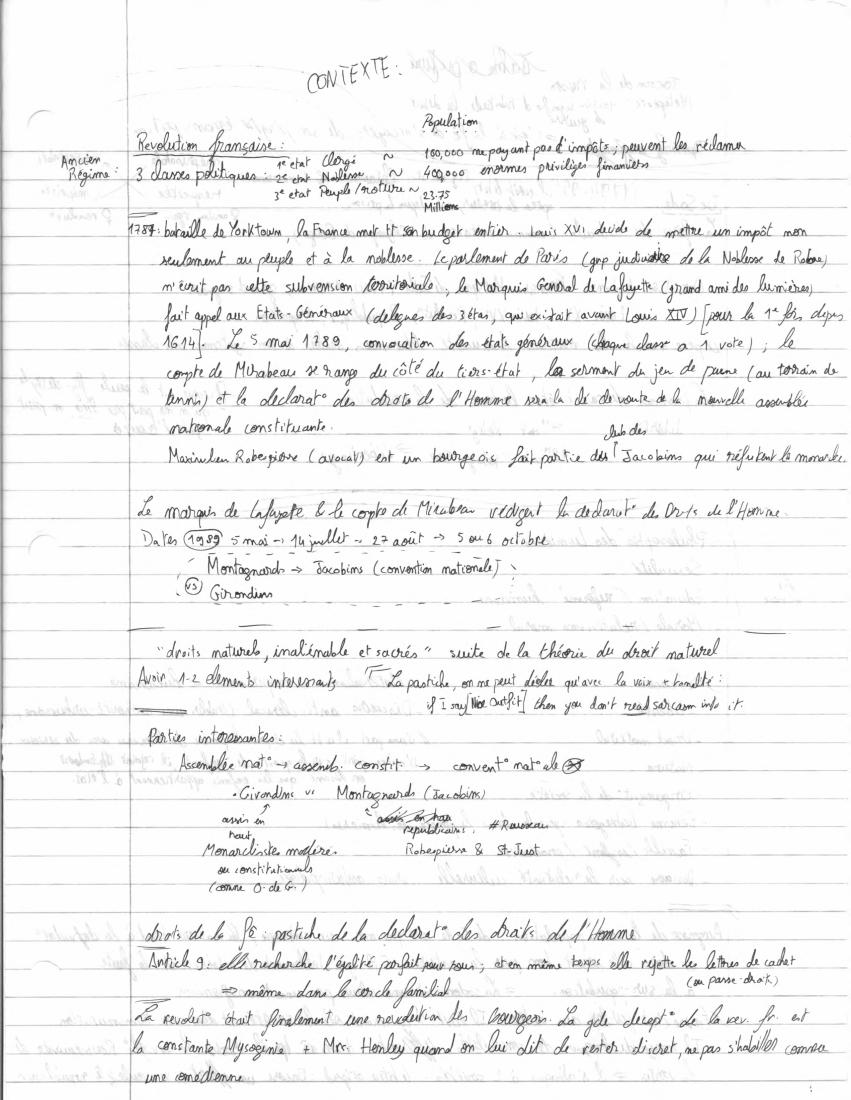 CONTEXTE :
Population
Revolution française :
Ancien Régime :
1e etat Clergé ~ 160,000 ne payant pas d'impôts ; peuvent les réclamer
3 classes politiques : 2e etat Noblesse ~ 400,000 enormes priviliges financiers
3e etat Peuple/roture ~ 23.75 Millions
1787 : bataille de Yorktown, la France met tt son budget entier. Louis XVI decide de mettre un impôt non
seulement au peuple et à la noblesse. Le parlement de Paris (grp judiciaire de la Noblesse de Robe)
n'écrit pas cette subvension territoriale, le Marquis General de Lafayette (grand ami des lumières)
fait appel aux Etats-Généraux (delegues des 3 états, qui existait avant Louis XIV) [pour la 1e fois depuis
1614]. Le 5 mai 1789, convocation des états généraux (chaque classe a 1 vote) ; le
compte de Mirabeau se range du côté du tiers-état, le serment du jeu de pume (au terrain de
tennis) et la declarat° des droits de l'Homme sera la clé de voute de la nouvelle assemblée
nationale constituante.
club des
Maximilien Robespierre (avocat) est un bourgeois fait partie des Jacobins qui réfutent la monarchie.
Le marquis de Lafayette & le compte de Mirabeau redigent la declarat° des Droits de l'Homme.
Dates 1989 5 mai → 14 juillet → 27 août → 5 ou 6 octobre
Montagnards → Jacobins (convention nationale)
vs
Girondins
"droits naturels, inaliénable et sacrés" suite de la théorie du droit naturel
Avoir 1-2 elements interessants La pastiche, on ne peut déceler qu'avec la voix + tonalité :
if I say [Nice Outfit] then you don't read sarcasm into it.
Parties interessantes :
Assemblée nat° → assemb. constit. → convent° nat°ale
• Girondins vs Montagnards (Jacobins)
assis en haut
republicains, # Rousseau
Monarchiste modéré. Robespierre & St-Just
ou constitutionnels
(comme O. de G.)
droits de la fe : pastiche de la declarat° des droits de l'Homme
Article 9 : elle recherche l'égalité parfait pour tous ; et en même temps elle rejette les lettres de cachet
(ou passe-droit)
⇒ même dans le cercle familial
La revolut° était finalement une revolution des bourgeois. La gde decept° de la rev. fr. est
la constante Mysoginie + Mrs. Henley quand on lui dit de rester discret, ne pas s'habiller comme
une comédienne